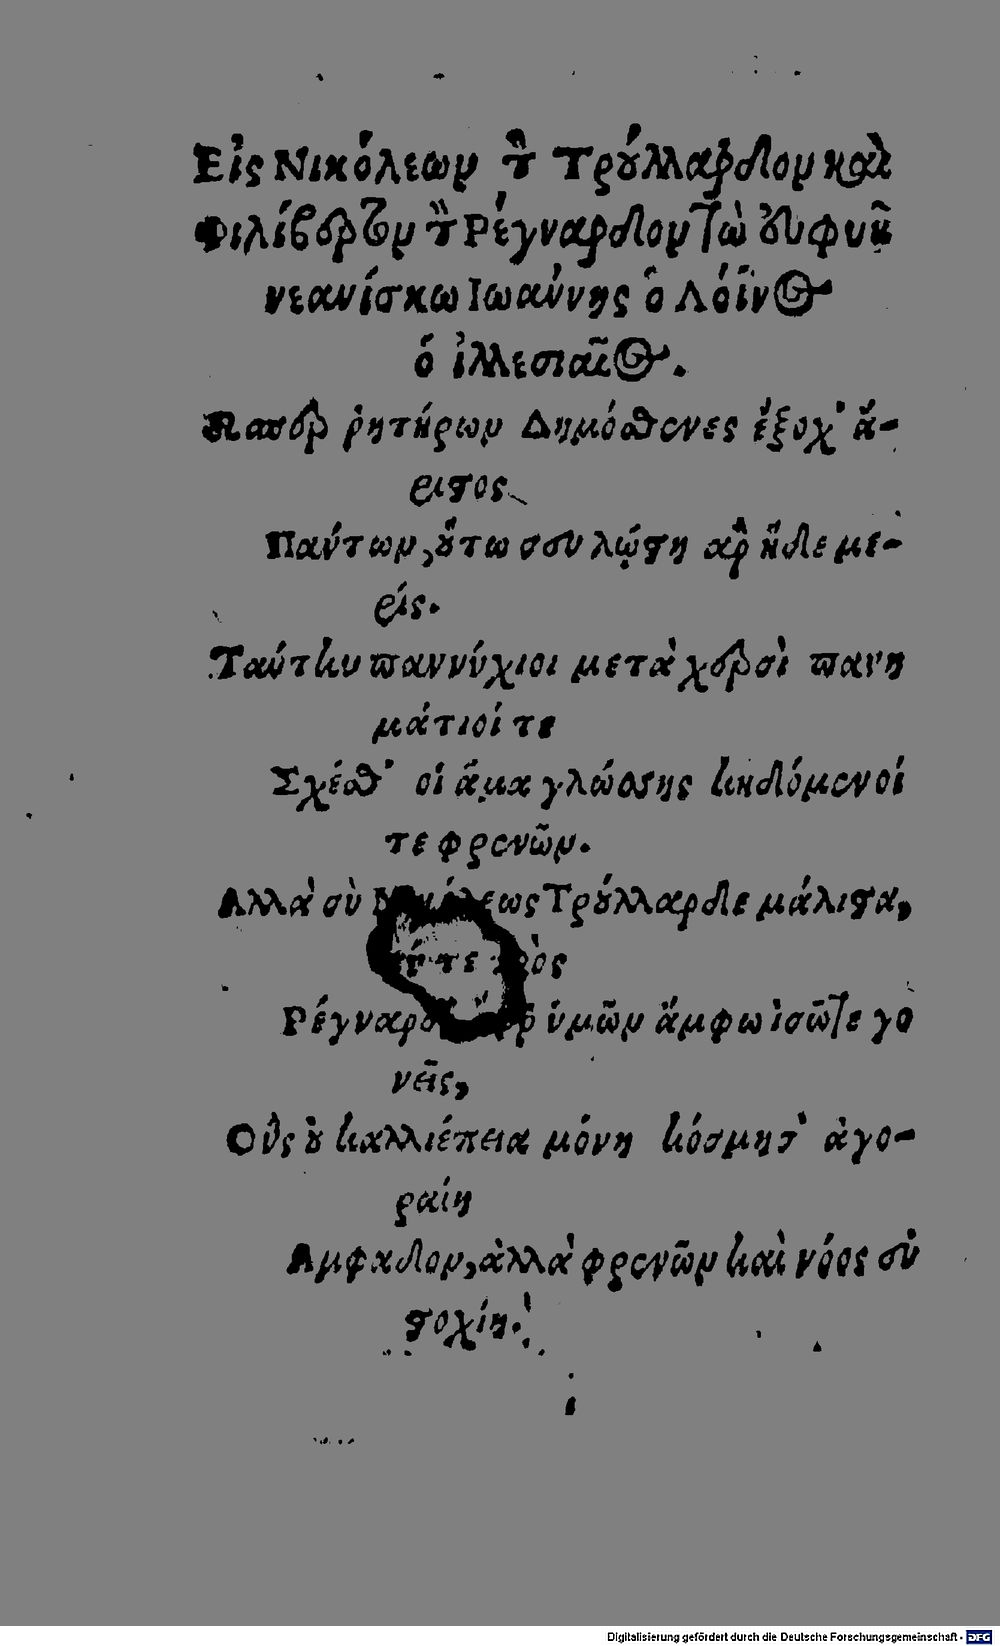 Εἰς Νικόλεων τ̂ Τρούλλαρδον καὶ
Φιλίβερτον τ̂ Ρέγναρδον τὼ οὐφυῆ
νεανίσκω Ιωαύνης ὁ Λόϊνος
ὁ ἰλλεσιαῖος.
ῥητήρων Δημόσθενες ἔξοχ' ἄ-
ριστος
Πάντων, οὕτω σου λῴστη γὰρ ἥδε με-
ρίς.
Ταύτην παννύχιοι μετὰ χερσὶ πανη
μάτιοί τε
Σχέσθ' οἱ ἅμα γλώσσης κηδόμενοί
τε φρενῶν.
Αλλὰ σὺ Νικόλεως Τρούλλαρδε μάλιστα,
Ρέγναρδε ὑμῶν ἄμφω ἰσῶτε γο
νεῖς,
Οὓς οὐ καλλιέπεια μόνη κόσμησ' ἀγο-
ραίη
Αμφαδον, ἀλλὰ φρενῶν καὶ νόος εὐ
στοχίη.
Digitalisierung gefördert durch die Deutsche Forschungsgemeinschaft - DFG